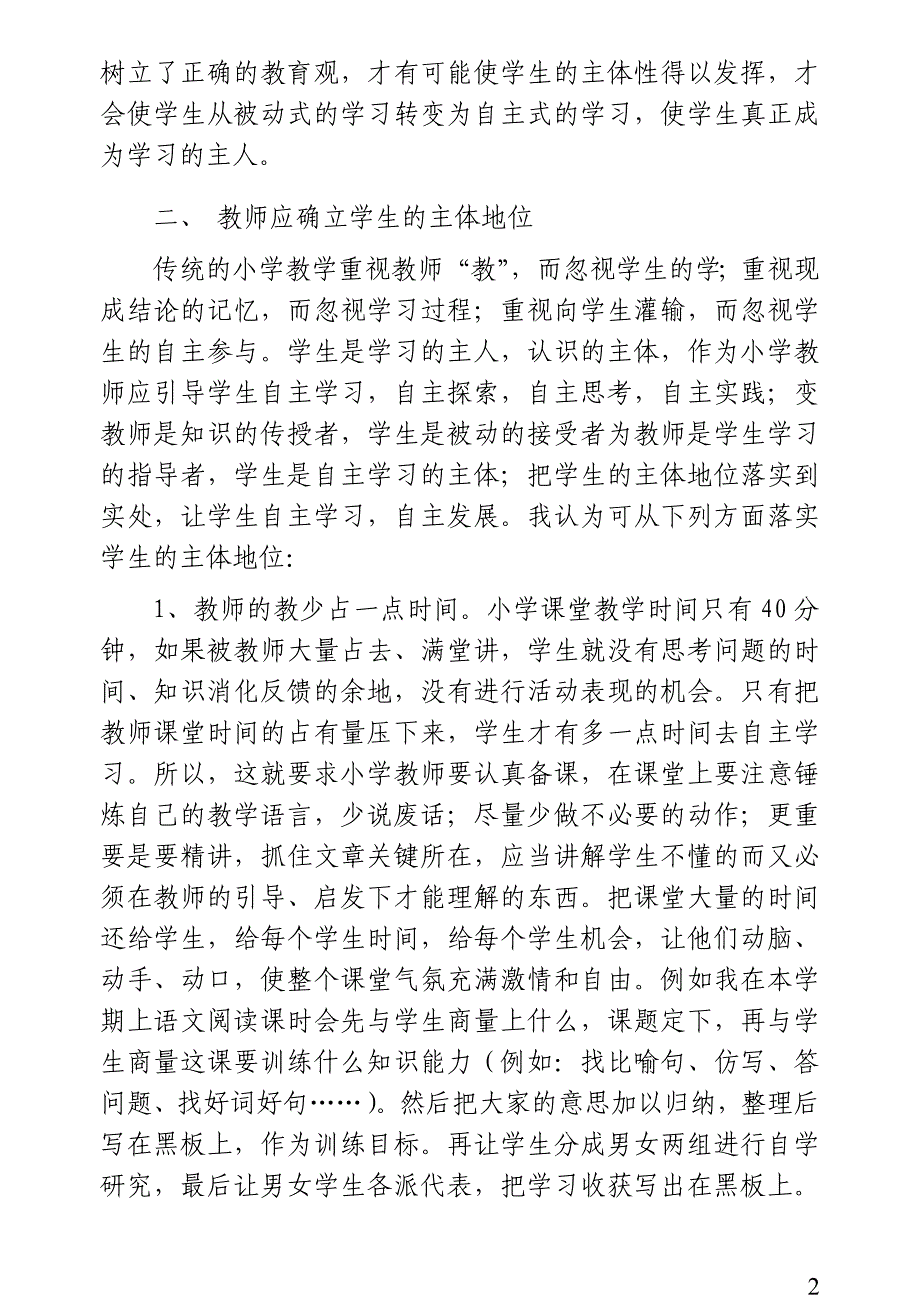 树立了正确的教育观，才有可能使学生的主体性得以发挥，才
会使学生从被动式的学习转变为自主式的学习，使学生真正成
为学习的主人。
二、 教师应确立学生的主体地位
传统的小学教学重视教师“教”，而忽视学生的学；重视现
成结论的记忆，而忽视学习过程；重视向学生灌输，而忽视学
生的自主参与。学生是学习的主人，认识的主体，作为小学教
师应引导学生自主学习，自主探索，自主思考，自主实践；变
教师是知识的传授者，学生是被动的接受者为教师是学生学习
的指导者，学生是自主学习的主体；把学生的主体地位落实到
实处，让学生自主学习，自主发展。我认为可从下列方面落实
学生的主体地位：
1、教师的教少占一点时间。小学课堂教学时间只有 40 分
钟，如果被教师大量占去、满堂讲，学生就没有思考问题的时
间、知识消化反馈的余地，没有进行活动表现的机会。只有把
教师课堂时间的占有量压下来，学生才有多一点时间去自主学
习。所以，这就要求小学教师要认真备课，在课堂上要注意锤
炼自己的教学语言，少说废话；尽量少做不必要的动作；更重
要是要精讲，抓住文章关键所在，应当讲解学生不懂的而又必
须在教师的引导、启发下才能理解的东西。把课堂大量的时间
还给学生，给每个学生时间，给每个学生机会，让他们动脑、
动手、动口，使整个课堂气氛充满激情和自由。例如我在本学
期上语文阅读课时会先与学生商量上什么，课题定下，再与学
生商量这课要训练什么知识能力（例如：找比喻句、仿写、答
问题、找好词好句……）。然后把大家的意思加以归纳，整理后
写在黑板上，作为训练目标。再让学生分成男女两组进行自学
研究，最后让男女学生各派代表，把学习收获写出在黑板上。
2